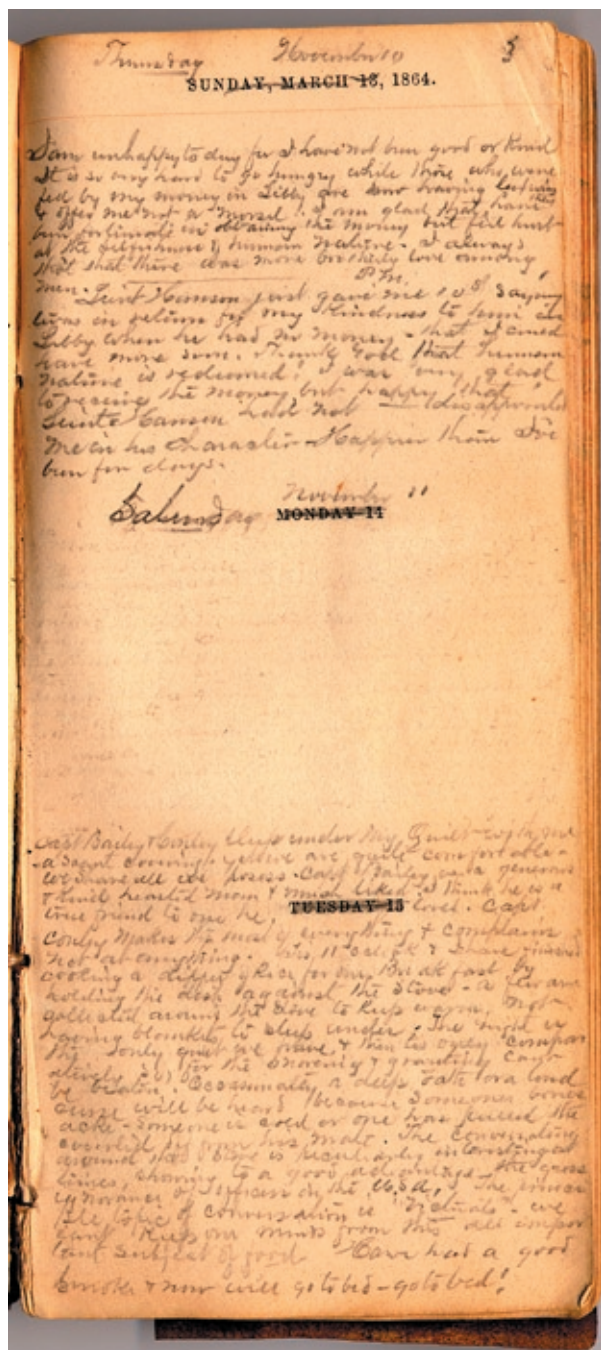 Thursday November 10 5
SUNDAY, MARCH 13, 1864.
I am unhappy to day for I have not been good or kind
It is so very hard to go hungry while those who were
fed by my money in Libby are now having
& offer me not a morsel. I am glad that they have
been fortunate in obtaining the money but feel hurt
at the selfishness of human nature - I always
that that there was more brotherly love among
men. P.M.
Leiut Hanson just gave me 10$ saying
twas in return for my kindness to him in
Libby when he had no money - that I could
have more soon. Thank God that human
nature is redeemed! I was very glad
to receive the money but happy that
Leiut Hanson had not disappointed
me in his character - Happier than I've
been for days.
November 11
Saturday MONDAY 14
Capt Bailey & Conley sleep under my quilt with me
a scant covering yet we are quite comfortable -
we share all we posess. Capt Bailey is a generous
& kind hearted man & much liked. I think he is a
true friend to one he loves. Capt
TUESDAY 15
Conley makes the most of everything & complains
not at anything. 11 o'clock & I have finished
cooking a dipper of Rice for my Breakfast by
holding the dish against the stove - a few are
gathered around the stove to keep warm, not
having blankets to sleep under. The night is
the only quiet we have, & then its only compar
atively so, for the snoreing & grunting cant
be beaten. Occasionally a deep oath or a loud
curse will be heard because someones bones
ache - someone is cold or one has pulled the
coverlid from his mate. The conversation
around the stove is peculiarly interesting at
times, showing to a good advantage the gross
ignorance of officers in the U.S.A. The princi
ple topic of conversation is "victuals" - we
cant keep our minds from this all impor
tant subject of food Have had a good
smoke & now will go to bed - go to bed!